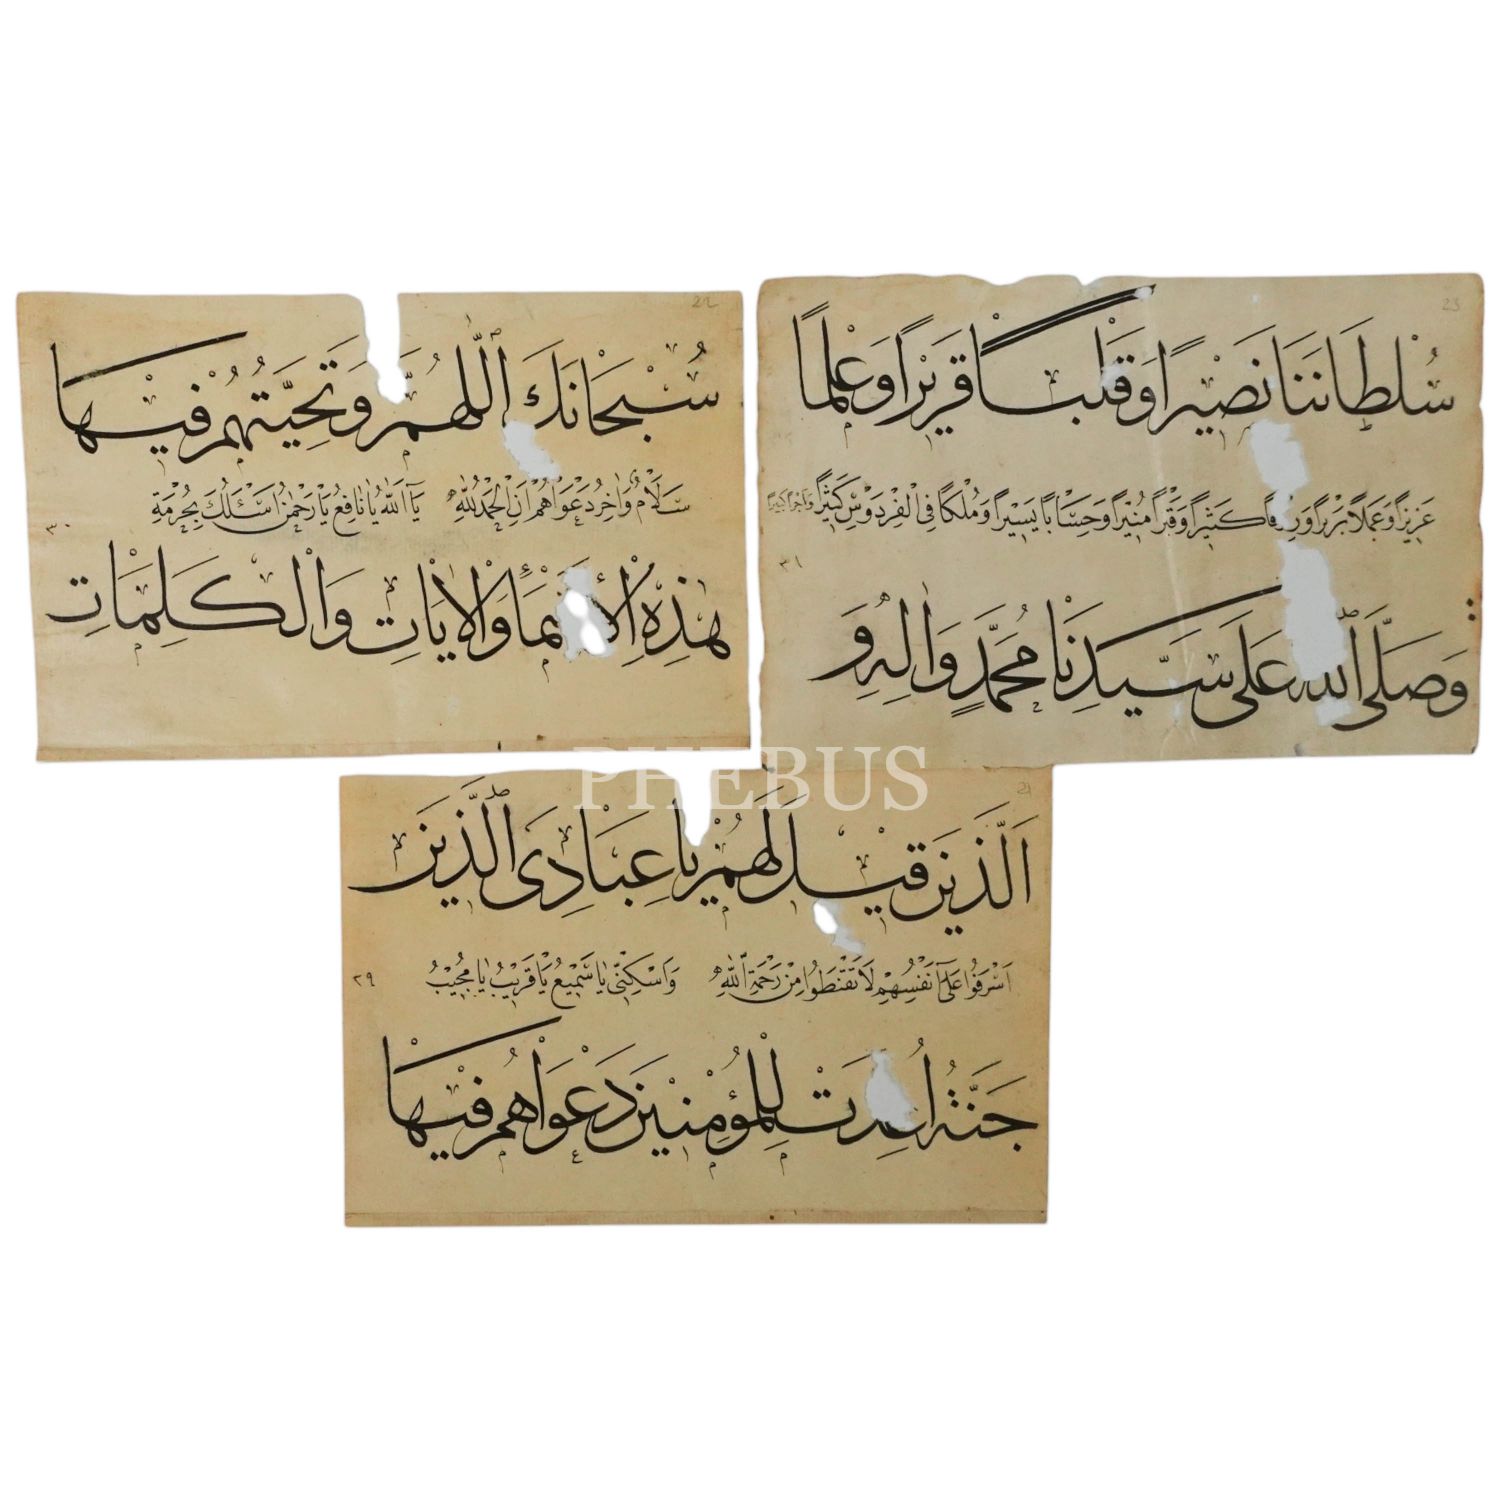 22
سُبْحَانَكَ اللّٰهُمَّ وَتَحِيَّتُهُمْ فِيهَا
سَلَامٌ وَاٰخِرُ دَعْوٰاهُمْ اَنِ الْحَمْدُ لِلّٰهِ يَا اَللّٰهُ يَا نَافِعُ يَا رَحْمٰنُ اَسْئَلُكَ بِحُرْمَةِ
٣٠
هٰذِهِ وَالْاٰيَاتِ وَالْكَلِمَاتِ
23
سُلْطَانَنَا نَصِيْرًا وَقَلْبًا قَرِيْرًا وَعِلْمًا
عَزِيزًا وَعَمَلًا بَرِيرًا كَثِيرًا وَقَبْرًا مُنِيْرًا وَحِسَابًا يَسِيْرًا وَمُلْكًا فِي الْفِرْدَوْسِ كَثِيْرًا وَاَجْرًا كَبِيْرًا
٣١
وَصَلَّى اللّٰهُ عَلَى سَيِّدِنَا مُحَمَّدٍ وَاٰلِهِ وَ
PHEBUS
21
اَلَّذِينَ قِيْلَ لَهُمْ يَا عِبَادِيَ الَّذِينَ
اَسْرَفُوا عَلٰى اَنْفُسِهِمْ لَا تَقْنَطُوا مِنْ رَحْمَةِ اللّٰهِ وَاَسْكِنِّي يَا سَمِيْعُ يَا قَرِيْبُ يَا مُجِيْبُ
٢٩
جَنَّةً اُعِدَّتْ لِلْمُؤْمِنِيْنَ دَعْوٰاهُمْ فِيْهَا